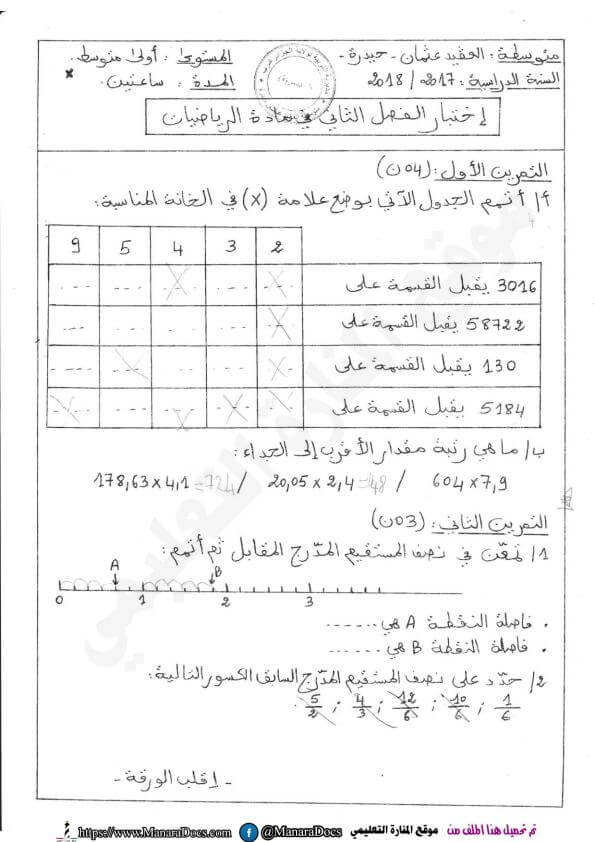 متوسطة : العقيد عثمان - حيدرة - المستوى : أولى متوسط.
السنة الدراسية : 2017 / 2018 المدة : ساعتين
إختبار الفصل الثاني في مادة الرياضيات
التمرين الأول : (04ن)
أ/ أتمم الجدول الآتي بوضع علامة (X) في الخانة المناسبة:
2 3 4 5 9
3016 يقبل القسمة على X --- X --- ---
58722 يقبل القسمة على X --- --- --- ---
130 يقبل القسمة على X --- --- X ---
5184 يقبل القسمة على X X X --- X
ب/ ما هي رتبة مقدار الأقرب إلى الجداء :
604 x 7,9 / 20,05 x 2,4 =48 / 178,63 x 4,1 =724
التمرين الثاني : (03ن)
1/ تمعّن في نصف المستقيم المدّرج المقابل ثم أتمم :
A B
0 1 2 3
. فاصلة النقطة A هي ......
. فاصلة النقطة B هي ......
2/ حدّد على نصف المستقيم المدّرج السابق الكسور التالية :
1/6 ; 10/6 ; 12/6 ; 4/3 ; 5/2
- إقلب الورقة -
تم تحميل هذا الملف من موقع المنارة التعليمي @ManaraDocs https://www.ManaraDocs.com